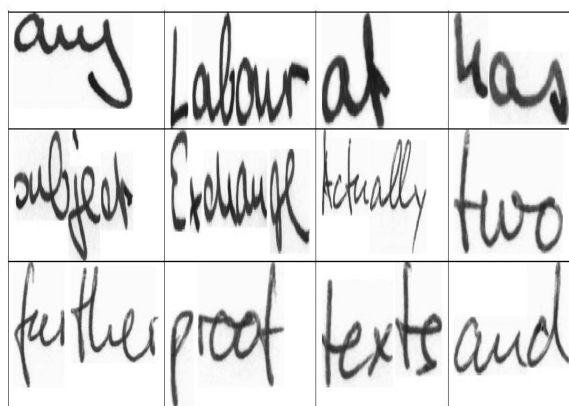 any Labour at has
subject Exchange Actually two
further proof texts and